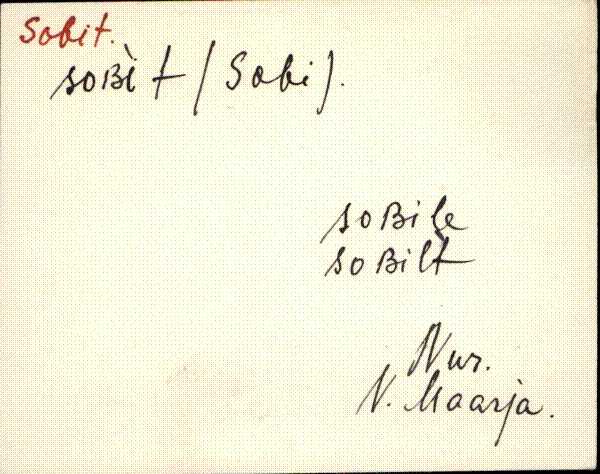 Sobit.
soBìt (Sobi).
soBile
soBilt
Nur.
V. Maarja.